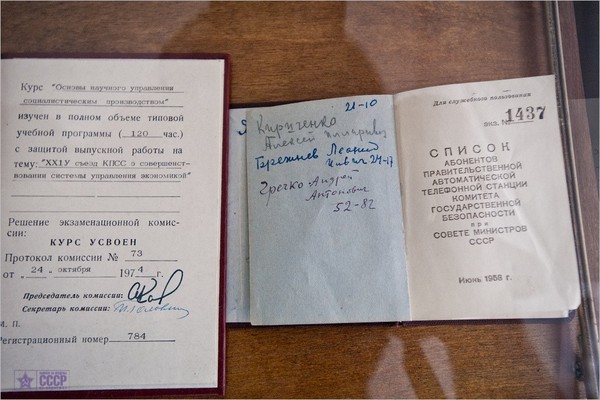 Курс "Основы научного управления
социалистическим производством"
изучен в полном объеме типовой
учебной программы ( 120 час.)
с защитой выпускной работы на
тему: "XXIУ съезд КПСС о совершенст-
вовании системы управления экономикой"
Решение экзаменационной комис-
сии:
КУРС УСВОЕН
Протокол комиссии № 73
от 24 октября 1974 г.
Председатель комиссии:
Секретарь комиссии:
М. П.
Регистрационный номер 784
СССР
21-10
Кириченко
Алексей Илларионович
Брежнев Леонид
24-17
Гречко Андрей
Антонович
52-82
Для служебного пользования
экз. № 1437
СПИСОК
АБОНЕНТОВ
ПРАВИТЕЛЬСТВЕННОЙ
АВТОМАТИЧЕСКОЙ
ТЕЛЕФОННОЙ СТАНЦИИ
КОМИТЕТА
ГОСУДАРСТВЕННОЙ
БЕЗОПАСНОСТИ
при
СОВЕТЕ МИНИСТРОВ
СССР
Июнь 1958 г.